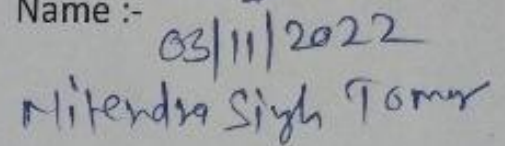 Name :-
03/11/2022
Mitendra Singh Tomar